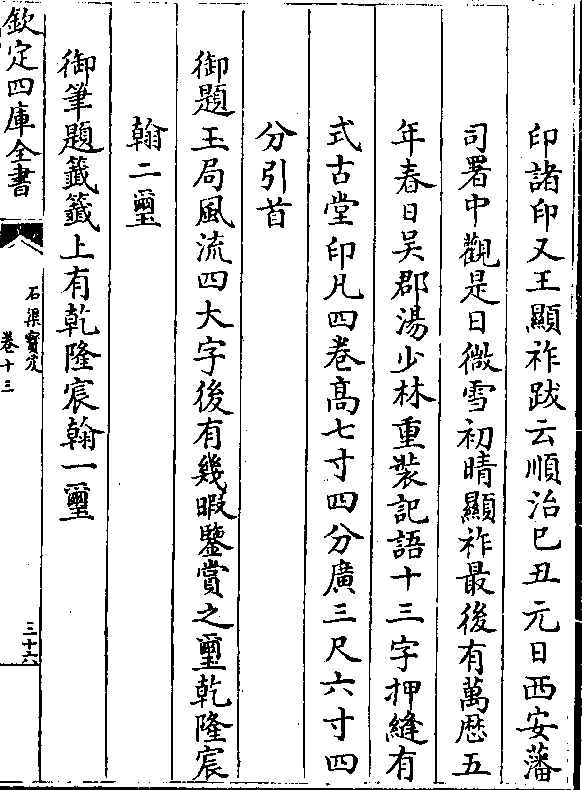 印諸印又王顯祚跋云順治己丑元日西安藩
司署中觀是日微雪初晴顯祚最後有萬厯五
年春日吳郡湯少林重裝記語十三字押縫有
式古堂印凡四卷高七寸四分廣三尺六寸四
分引首
御題王局風流四大字後有幾暇鑒賞之璽乾隆宸
翰二璽
御筆題籤籤上有乾隆宸翰一璽
欽定四庫全書
石渠寶笈
卷十三
三十六